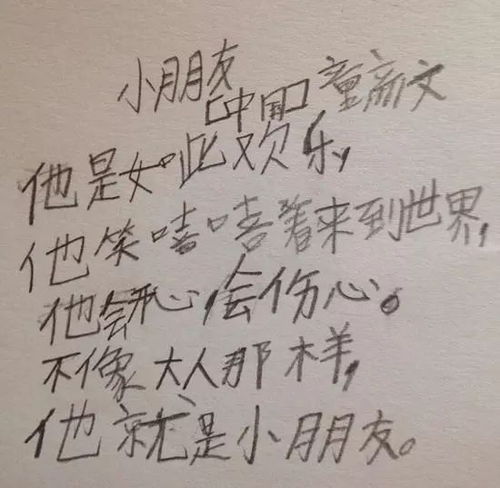 小朋友
[中国]童商文
他是如此欢乐,
他笑嘻嘻着来到世界,
他会开心,会伤心。
不像大人那样,
他就是小朋友。